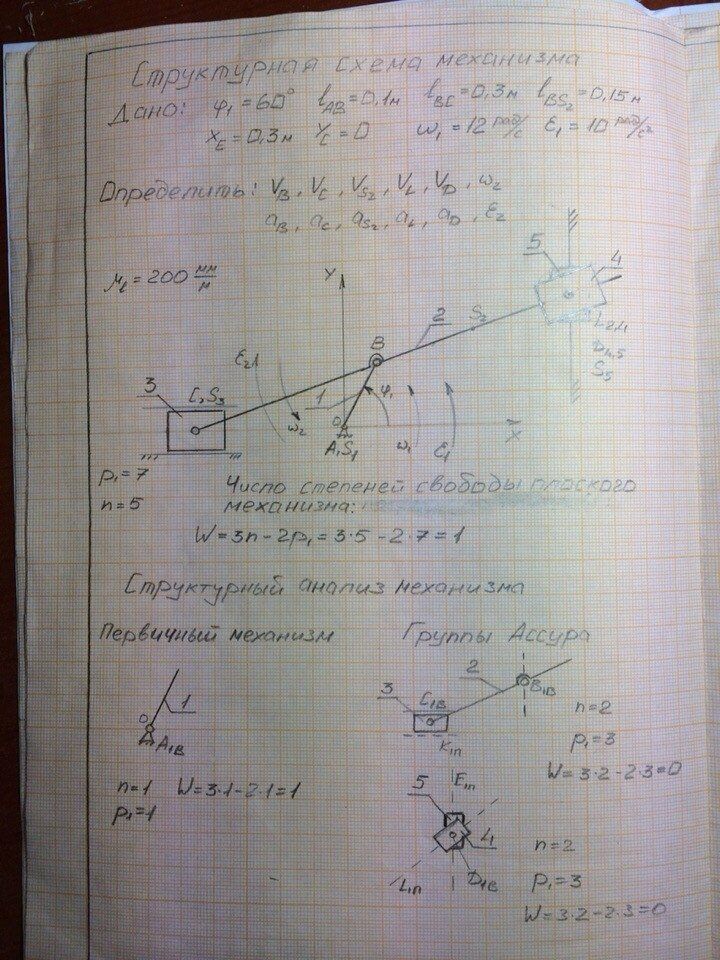 Структурная схема механизма
Дано: φ₁=60° l_AB=0,1м l_BC=0,3м l_BS₂=0,15м
X_E=0,3м Y_C=0 ω₁=12 рад/с ε₁=10 рад/с²
Определить: V_B, V_C, V_S₂, V_L, V_D, ω₂
a_B, a_C, a_S₂, a_L, a_D, ε₂
μ_l=200 мм/м
Y
5
4
2
S₂
B
L₂,₄
D₄,₅
S₅
3
C,S₃
ε₂
1
φ₁
ω₂
0
A,S₁
ω₁
ε₁
X
p₁=7
n=5
Число степеней свободы плоского
механизма:
W=3n-2p₁=3·5-2·7=1
Структурный анализ механизма
Первичный механизм
Группы Ассура
1
0
A₁В
n=1 W=3·1-2·1=1
p₁=1
3
2
C₁В
B₁В
K₁п
n=2
p₁=3
W=3·2-2·3=0
5
E₁п
4
L₁п
D₁В
n=2
p₁=3
W=3·2-2·3=0